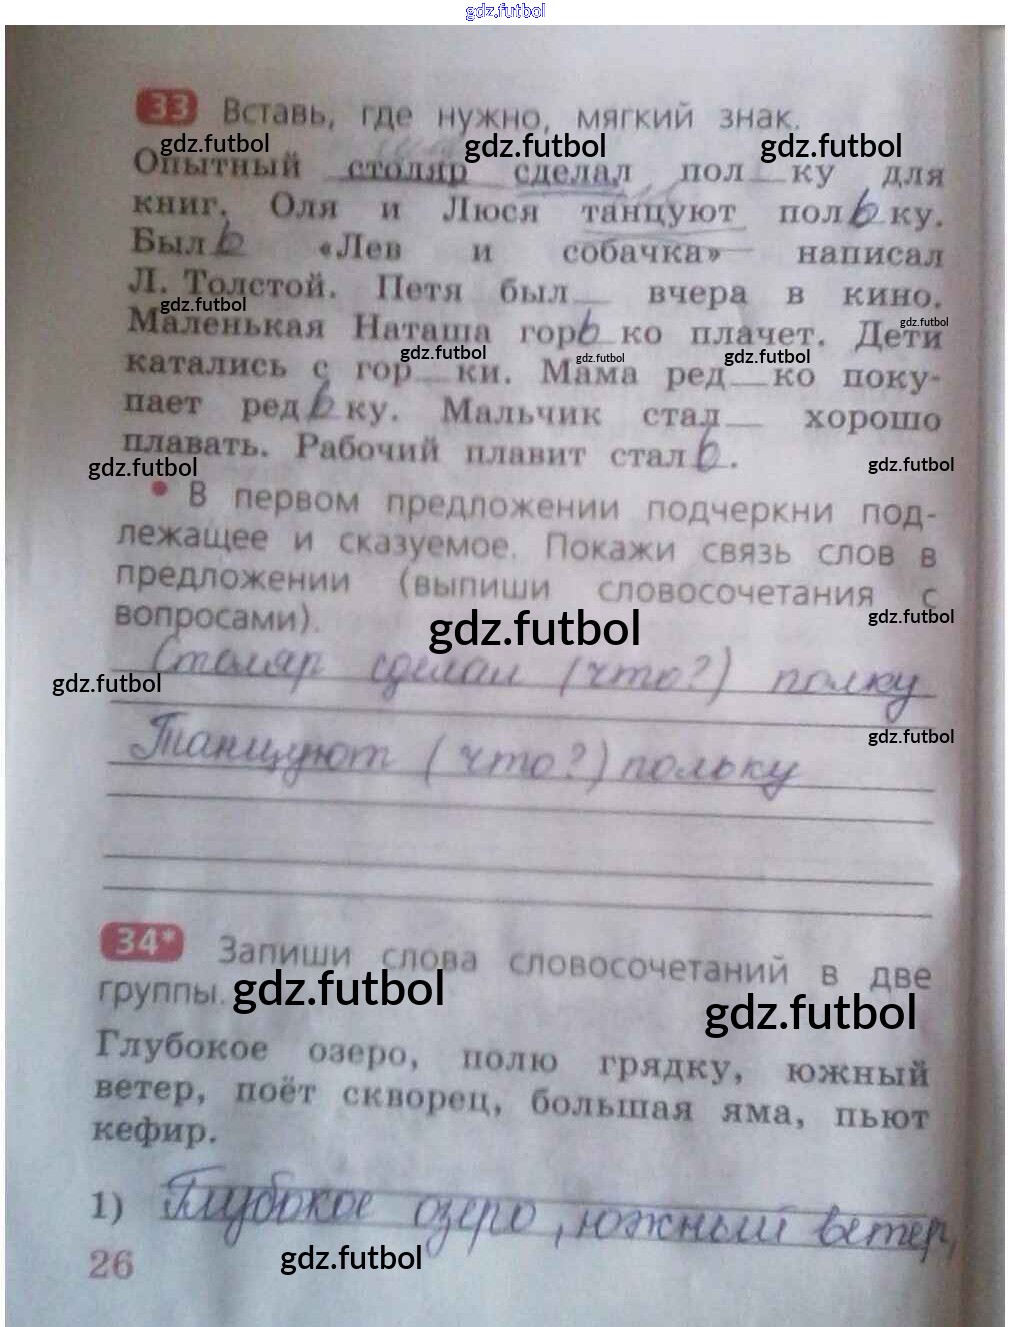 gdz.futbol
33 Вставь, где нужно, мягкий знак.
gdz.futbol gdz.futbol gdz.futbol
Опытный столяр сделал пол__ку для
книг. Оля и Люся танцуют пол ь ку.
Был ь «Лев и собачка» написал
Л. Толстой. Петя был__ вчера в кино.
gdz.futbol
Маленькая Наташа гор ь ко плачет. Дети
gdz.futbol
gdz.futbol gdz.futbol gdz.futbol
катались с гор__ки. Мама ред__ко поку-
пает ред ь ку. Мальчик стал__ хорошо
плавать. Рабочий плавит стал ь.
gdz.futbol gdz.futbol
• В первом предложении подчеркни под-
лежащее и сказуемое. Покажи связь слов в
предложении (выпиши словосочетания с
вопросами).
gdz.futbol gdz.futbol
Столяр сделал (что?) полку
gdz.futbol
gdz.futbol
Танцуют (что?) польку
34* Запиши слова словосочетаний в две
группы.
gdz.futbol gdz.futbol
Глубокое озеро, полю грядку, южный
ветер, поёт скворец, большая яма, пьют
кефир.
1) Глубокое озеро, южный ветер,
26
gdz.futbol